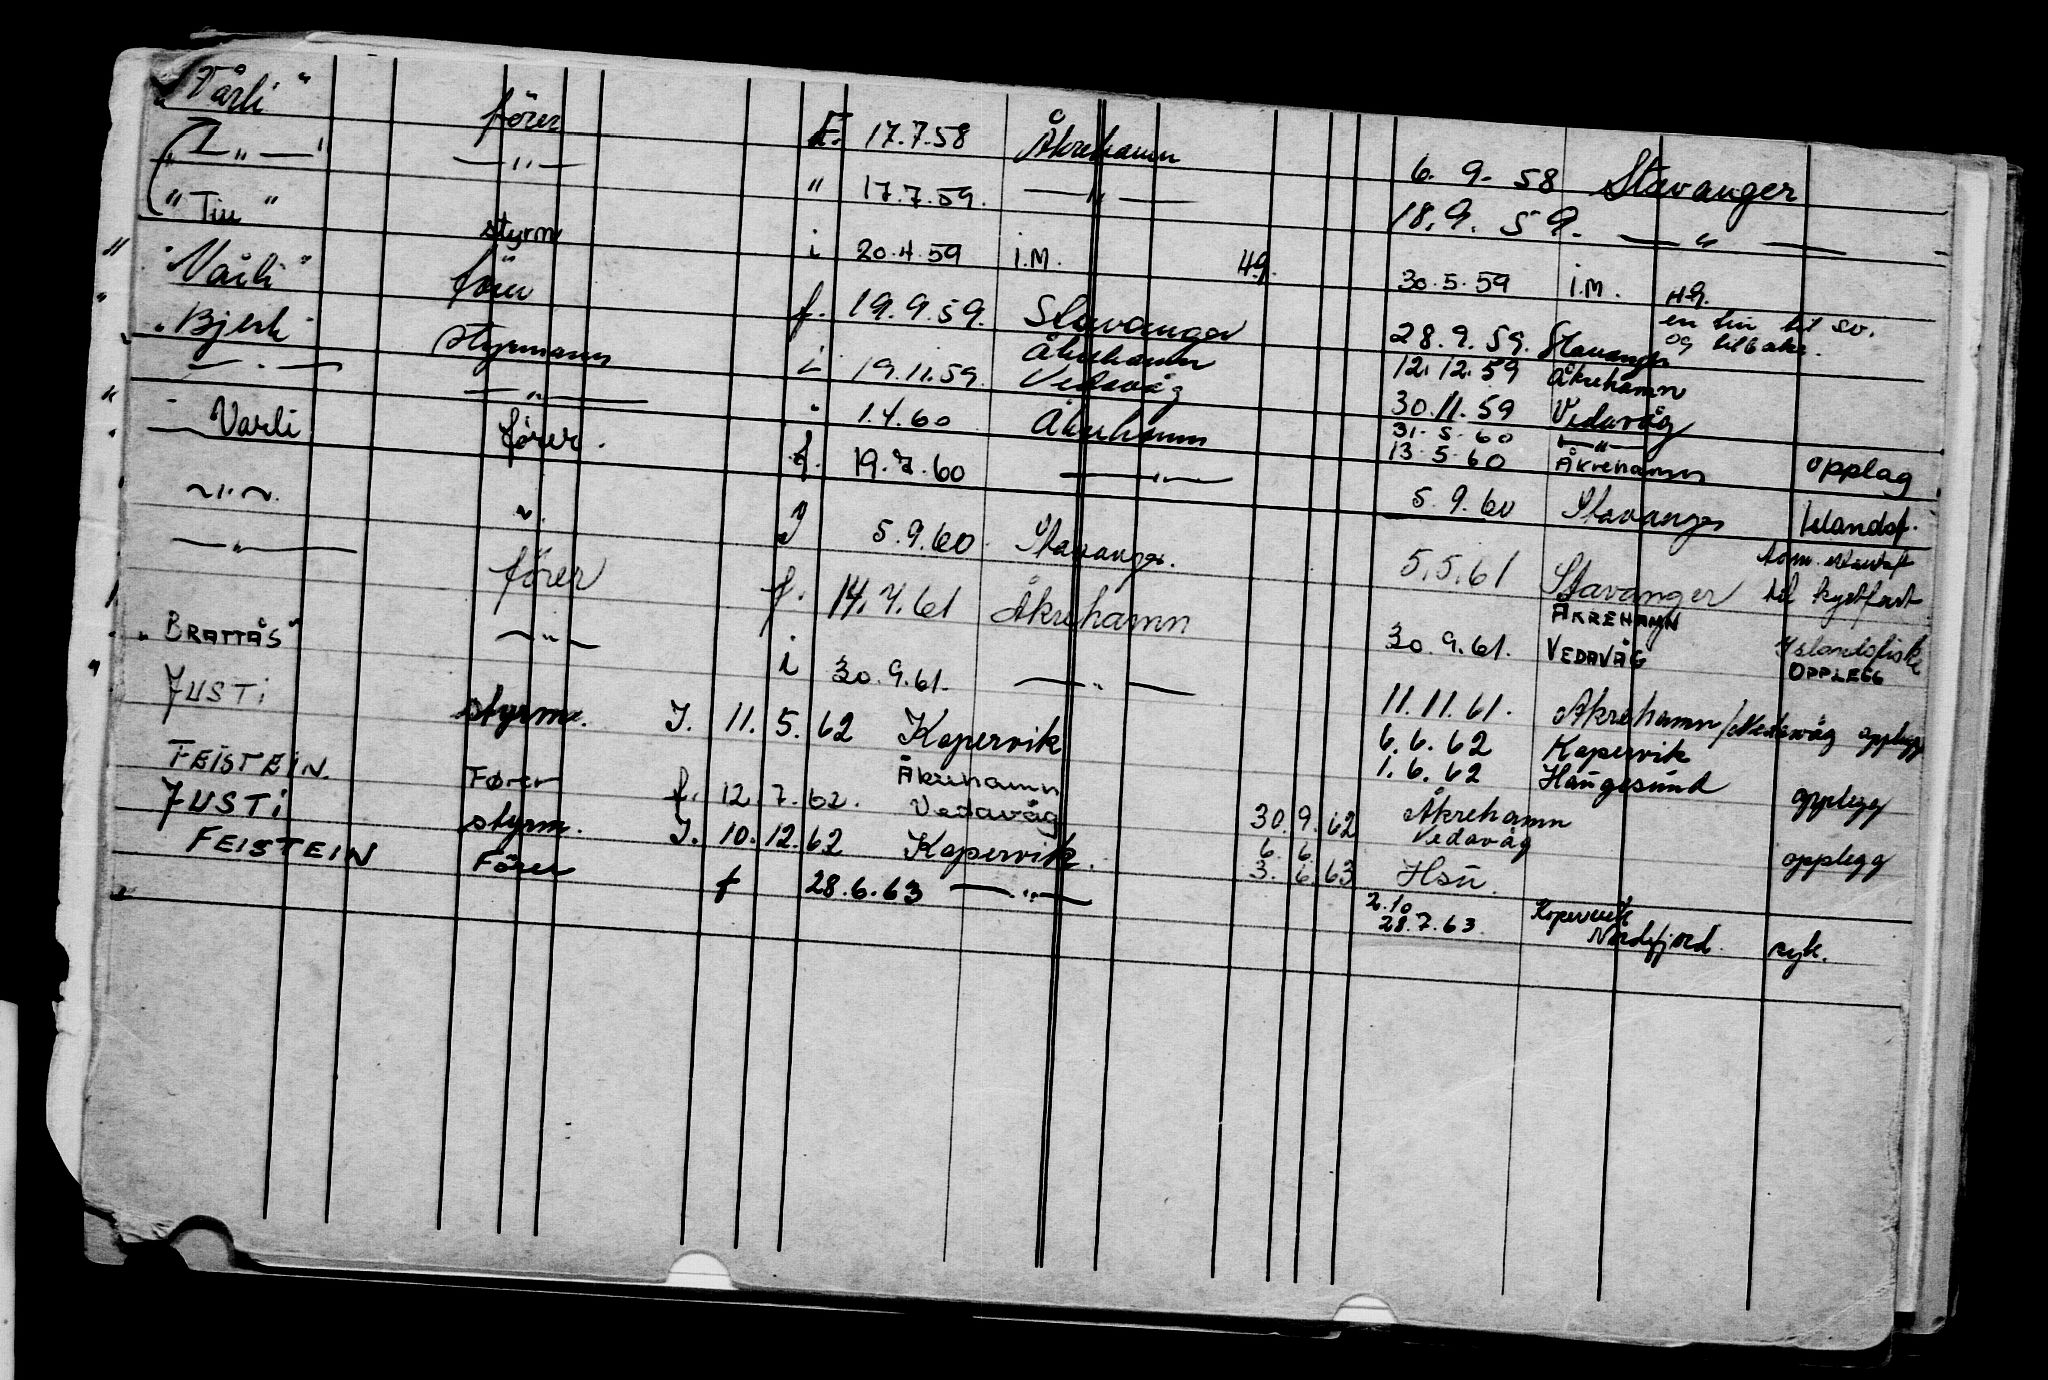 "Vårli" förer F. 17.7.58 Åkrehamn 6. 9. 58 Stavanger
" — " — — " — " 17.7.59. — " — 18.9. 59. — " —
" Tiu " styrm i 20.4.59 i.M. Hg. 30.5.59 i.M. Hg.
"Vårli" förer f. 19.9.59. Stavanger 28.9.59. Stavanger en tur til sv. og tilbake.
"Bjerk" styrmann i 19.11.59. Åkrehamn Vedavåg 12.12.59 Åkrehamn
30.11.59 Vedavåg
— " — — " — " 1.4.60 Åkrehamn 31.5.60 — " —
13.5.60 Åkrehamn opplag
" Varli förer. f. 19.7.60 — " — 5.9.60 Stavanger Islandsf.
— " — " J 5.9.60 Stavanger. 5.5.61 Stavanger til kystfart
— " — förer f. 14.7.61 Åkrehamn 30.9.61. ÅKREHAMN VEDAVÅG Islandsfiske OPPLEGG
"BRATTÅS" — " — i 30.9.61. — " — 11.11.61. Åkrehamn/Vedavåg opplegg
JUSTi styrm. J. 11.5.62 Kopervik 6.6.62 Kopervik
1.6.62 Haugesund opplegg
FEISTEIN. Fører f. 12.7.62. Åkrehamn Vedavåg 30.9.62 Åkrehamn Vedavåg
JUSTi styrm. J. 10.12.62 Kopervik. 6. 6.
3. 6. 63 Hsū. opplegg
FEISTEIN Förer f 28.6.63 — " — 2.10 Kopervik
28.7.63. Nordfjord.